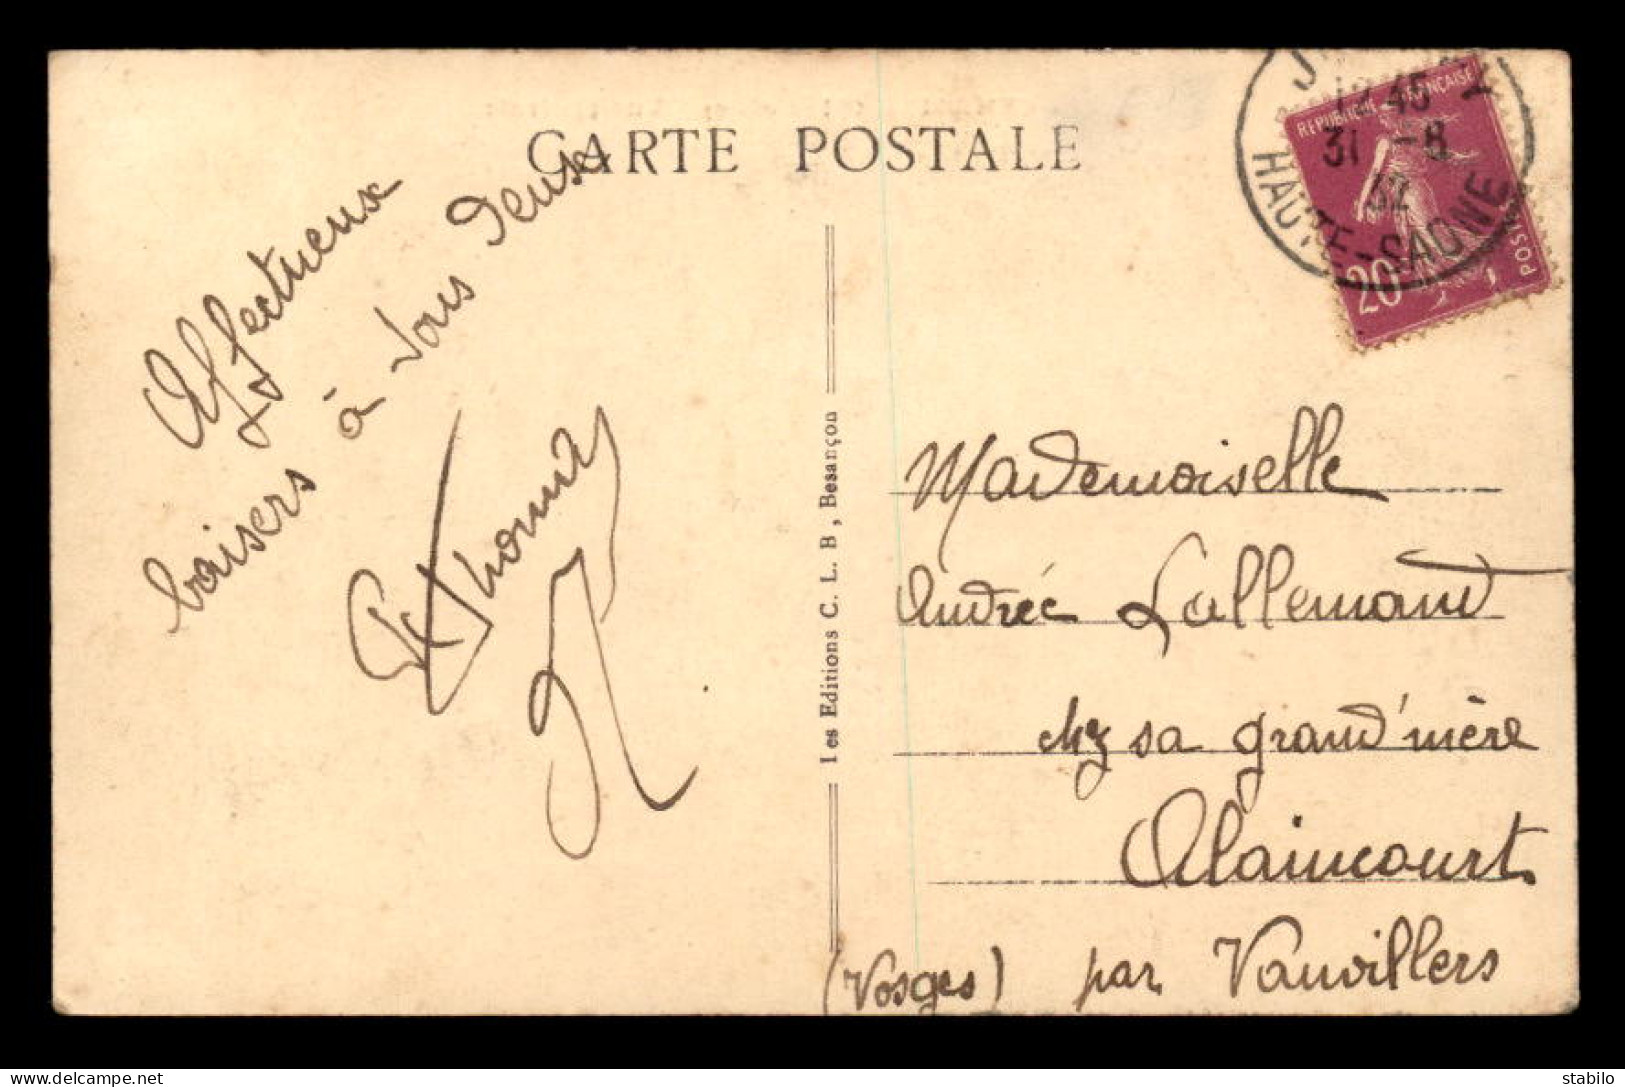 CARTE POSTALE
Affectueux
baisers à vous deux
Thomas
Les Editions C. L. B, Besançon
REPUBLIQUE FRANÇAISE
POSTES
20
45
31 -8
32
HAUTE-SAONE
Mademoiselle
Andrée Lallemand
chez sa grand'mère
Alaincourt
(Vosges) par Vauvillers
delcampe.net
stabilo